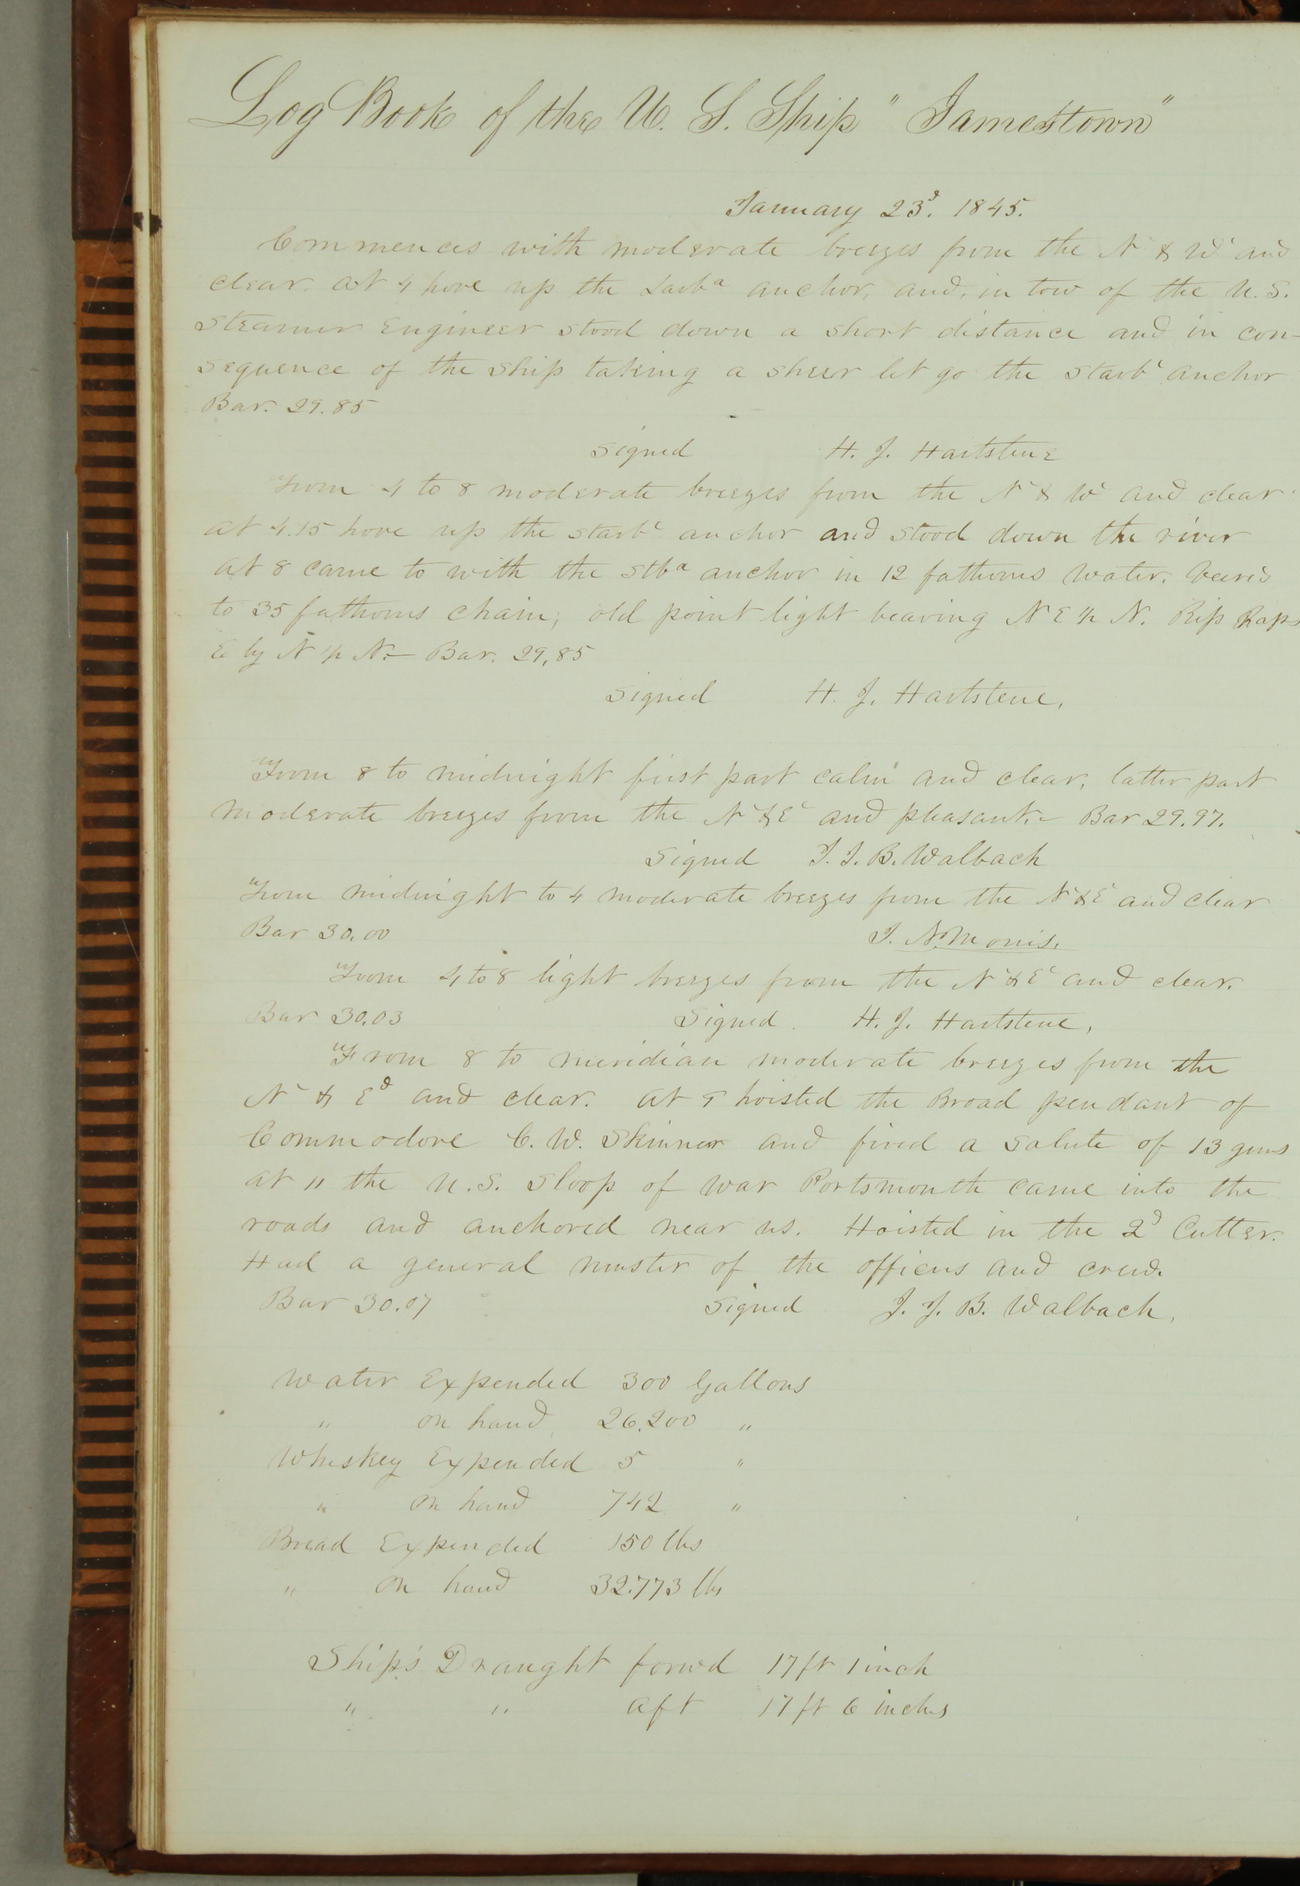 Log Book of the U. S. Ship "Jamestown"
January 23d. 1845.
Commences with moderate breezes from the Nd & Wd and
clear. At 4 hove up the Larbd anchor, and, in tow of the U.S.
Steamer Engineer stood down a short distance and in con-
sequence of the ship taking a sheer let go the starbd anchor
Bar. 29.85
Signed H. J. Hartstene
From 4 to 8 moderate breezes from the Nd & Wd and clear.
at 4.15 hove up the starbd anchor and stood down the river
at 8 came to with the stbd anchor in 12 fathoms water. veered
to 35 fathoms chain; old point light bearing N E ½ N. Rip Raps
E by N ½ N.— Bar. 29,85
Signed H. J. Hartstene.
From 8 to midnight first part calm and clear, latter part
moderate breezes from the Nd & Ed and pleasant.— Bar 29.97.
Signed J. J. B. Walbach
From midnight to 4 moderate breezes from the Nd & Ed and clear
Bar 30.00 Morris.
From 4 to 8 light breezes from the Nd & Ed and clear.
Bar 30.03 Signed. H. J. Hartstene,
From 8 to meridian moderate breezes from the
Nd & Ed and clear. at 9 hoisted the Broad pendant of
Commodore C. W. Skinner and fired a salute of 13 guns
at 11 the U.S. Sloop of war Portsmouth came into the
roads and anchored near us. Hoisted in the 2d Cutter.
Had a general muster of the officers and crew.
Bar 30.07 Signed J. J. B. Walbach,
Water Expended 300 Gallons
" on hand 26,200 "
Whiskey Expended 5 "
" on hand 742 "
Bread Expended 150 lbs
" on hand 32.773 lbs
Ship's Draught forwd 17 ft 1 inch
" " aft 17 ft 6 inches